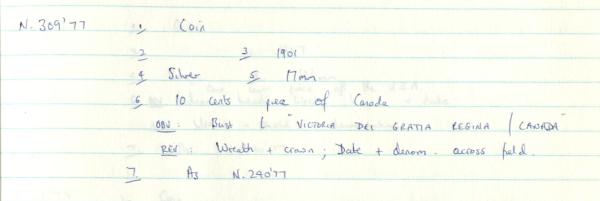 N. 309'77 1 Coin
2 3 1901
4 Silver 5 17mm
6 10 cents piece of Canada
OBV: Bust L "VICTORIA DEI GRATIA REGINA / CANADA"
REV: Wreath + crown; Date + denom. across field.
7. As N.290'77